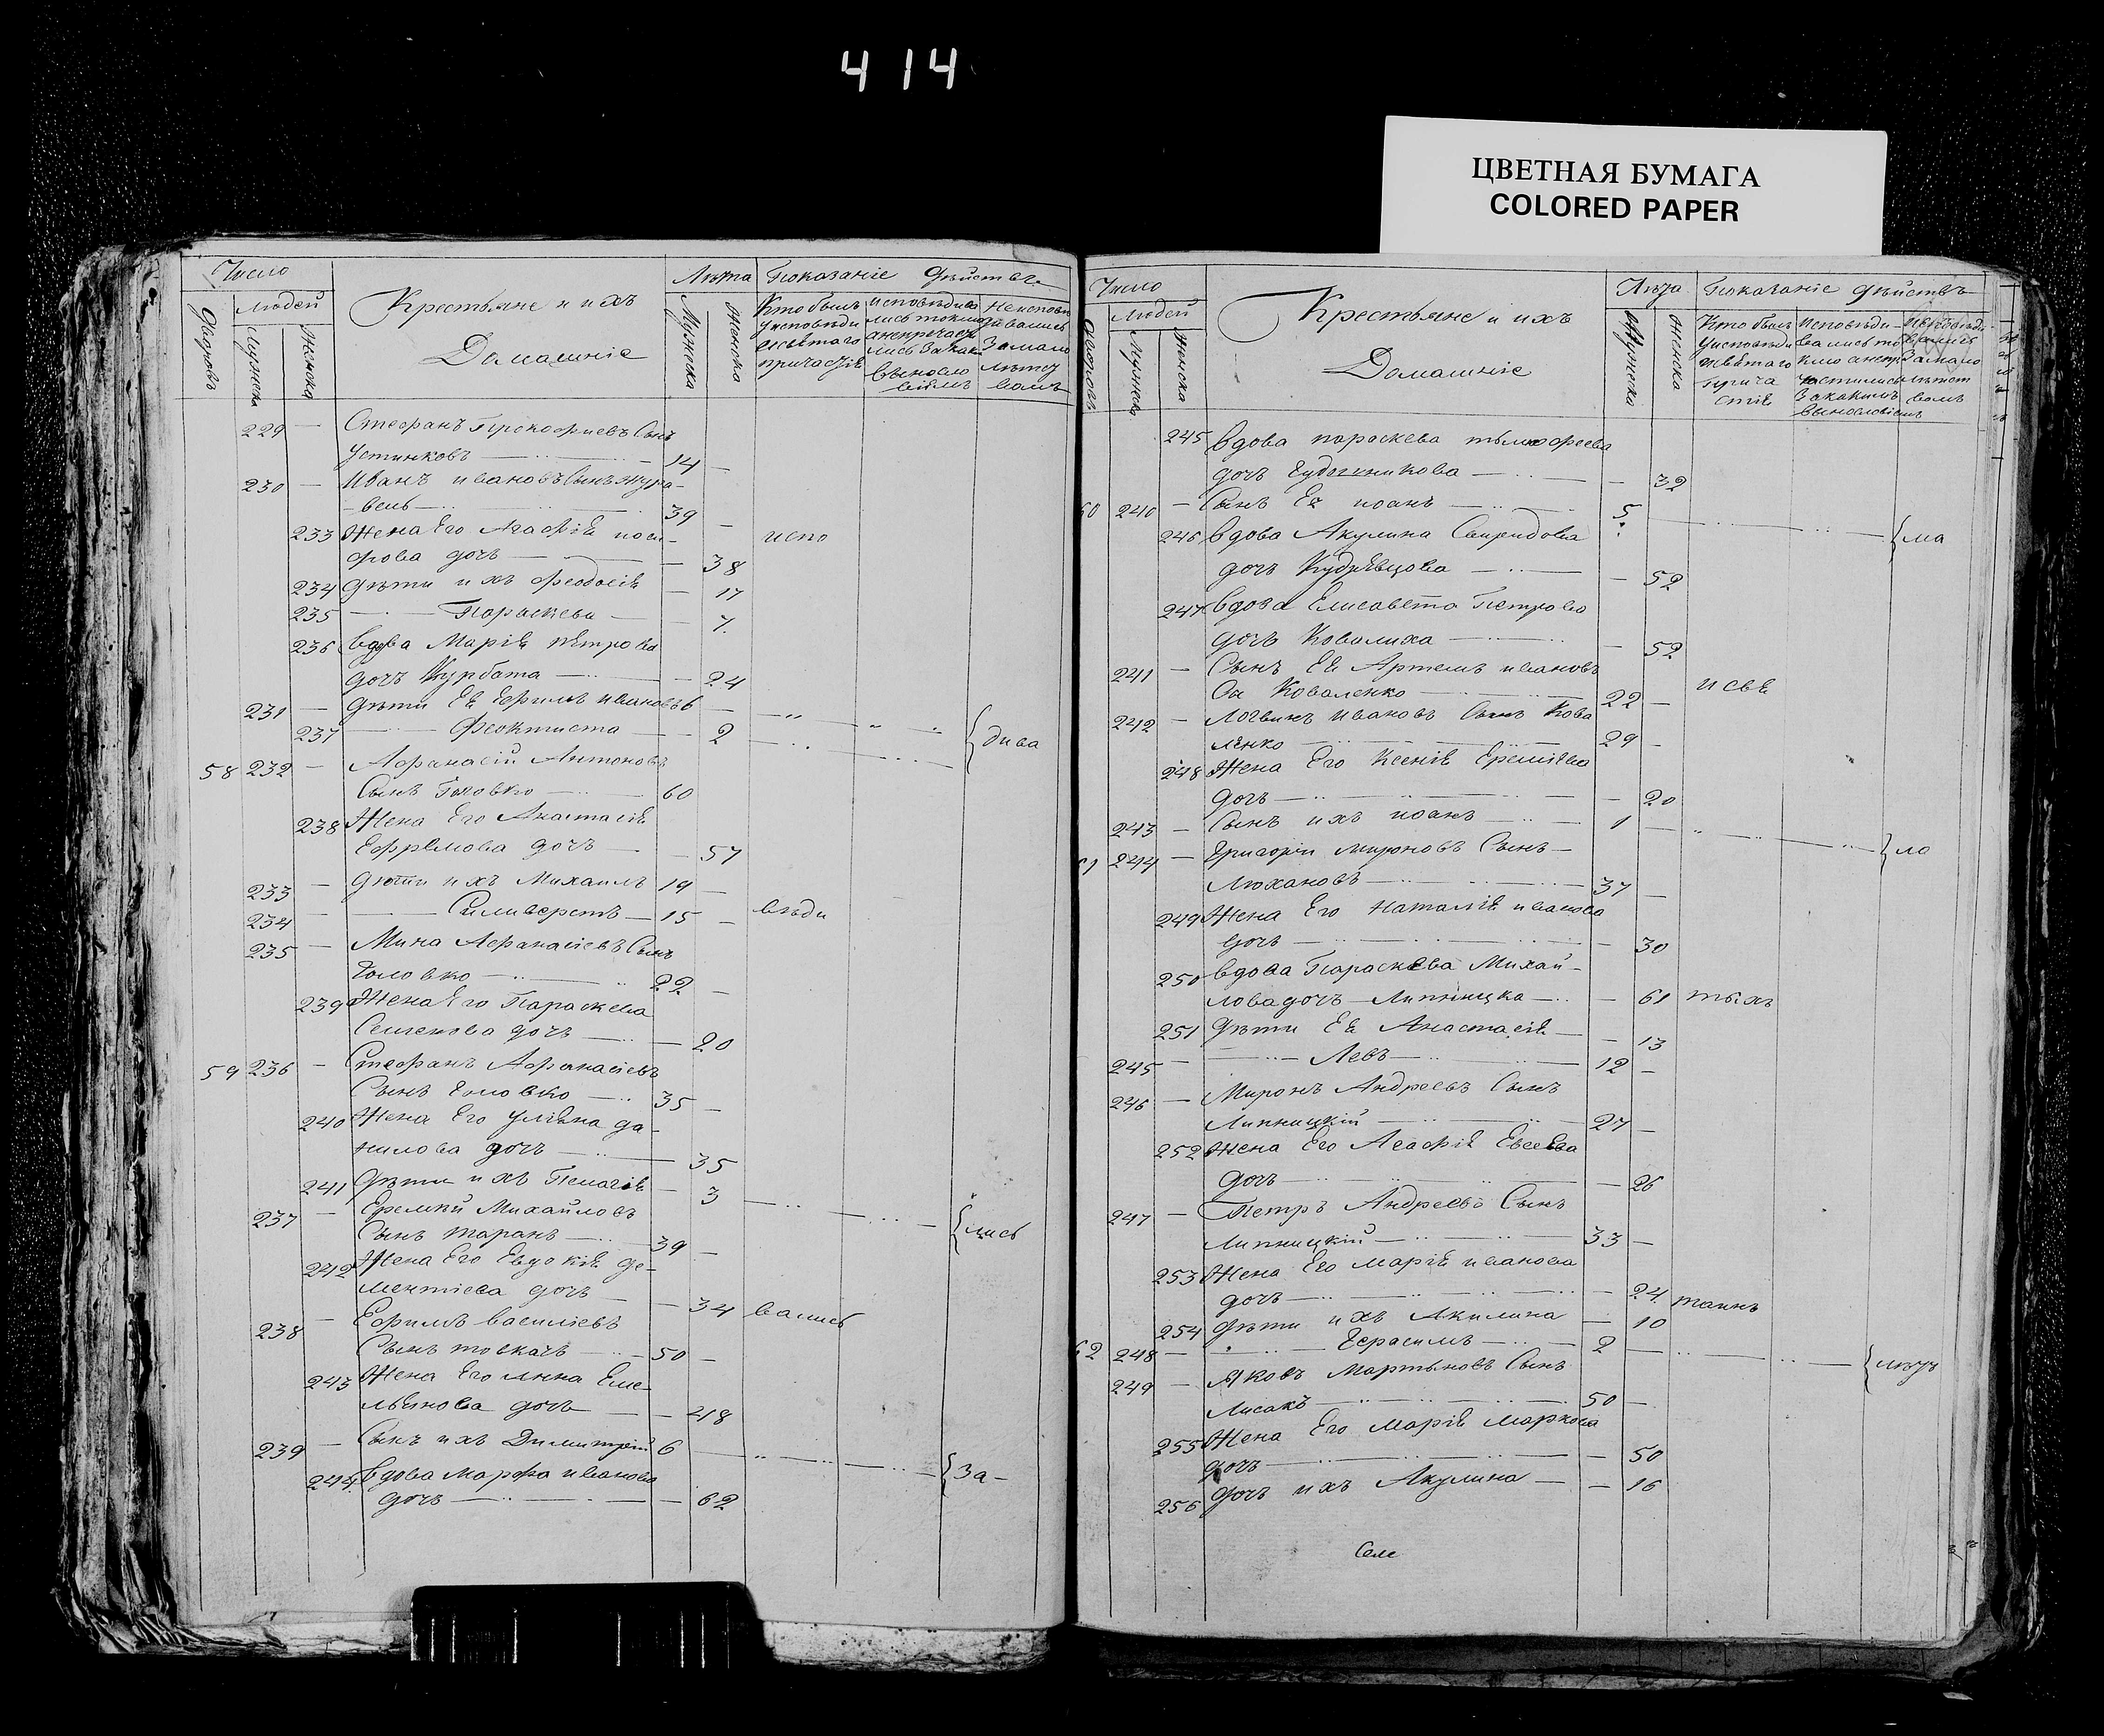 414
ЦВЕТНАЯ БУМАГА
COLORED PAPER
Число
Людей
Дворовъ
Мужеска
Женска
Крестьяне и ихъ
Домашніе
Лѣта
Мужеска
Женска
Показаніе действъ
Кто былъ
у исповѣди
и святаго
причастія
Исповѣдыва
лись токмо
а непричас
лись За како
вы
Неисповѣ
дывались
За мало
лѣтс
вомъ
229 — Стефанъ Прокофиевъ Сынъ
Устинковъ — 14 —
230 — Иванъ ивановъ Сынъ жура-
-вель — 39 —
233 Жена Его Агафія иоси- испо
фова дочь — — 38
234 дѣти ихъ феодосія — 17
235 — Параскева — — 7.
236 вдова Марія петрова
дочь Курбата — — 24
231 — дѣти Ея Ефимъ ивановъ 6 —
237 — Феоктиста — — 2 {дива
58 232 — Афанасій Антоновъ
Сынъ Головко — 60
238 Жена Его Анастасія
Ефремова дочь — — 57
233 — дѣти ихъ Михаилъ 19 —
234 — — Силиверстъ — 15 — вѣди
235 — Мина Афанасіевъ Сынъ
Головко — 22 —
239 Жена Его Параскева
Семенова дочь — — 20
59 236 — Стефанъ Афанасіевъ
Сынъ Головко — 35 —
240 Жена Его Улияна да-
нилова дочь — — 35
241 Дѣти ихъ Пелагія — 3
237 — Еремий Михайловъ {лись
Сынъ таранъ — 39 —
242 Жена Его Евдокія де-
ментіева дочь — — 34 вались
238 — Ефимъ василіевъ
Сынъ товкачъ — 50 —
243 Жена Его Анна Еме-
льянова дочь — — 48
239 — Сынъ ихъ Димитрій 6 — {За-
244 вдова Марфа иванова
дочь — — 62
Число
Людей
Дворовъ
Мужеска
Женска
Крестьяне и ихъ
Домашніе
Лѣта
Мужеска
Женска
Показаніе действъ
Кто былъ
у исповѣди
и святаго
прича
стія
Исповѣди-
вались то
кмо а непр
частились
За какимъ
винословіемъ
Неисповѣди-
вались
За мало
лѣтст
вомъ
245 вдова параскева тимофеева
дочь — — 32
60 240 — Сынъ Ея иоанъ — 5.
246 вдова Акулина Свиридова {ма
дочь Кудрявцова — — 52
247 вдова Елисавета Петрова
дочь Ковалиха — — 52
241 — Сынъ Ея Артемъ ивановъ
Коваленко — 22 — и свя
242 — Логвинъ ивановъ Сынъ Кова
ленко — 29 —
248 Жена Его Ксенія Еремієва
дочь — — 20
243 — Сынъ ихъ иоанъ — 1 — {ло
61 244 — Григорій мироновъ Сынъ —
Люхановъ — 37 —
249 Жена Его Наталія иванова
дочь — — 30
250 вдова Параскева Михай-
лова дочь — Липницка — — 61 тыхъ
251 Дѣти Ея Анастасія — — 13
245 — — Левъ — 12 —
246 — Миронъ Андреевъ Сынъ
Липницкій — 27 —
252 Жена Его Агафія Евсеева
дочь — — 26
247 — Петръ Андреевъ Сынъ
Липницкій — 33 —
253 Жена Его Марія иванова
дочь — — 24 таинъ
254 Дѣти ихъ Акилина — 10
62 248 — — Герасимъ — 2 —
249 — Яковъ Мартыновъ Сынъ
Лисакъ — 50 —
255 Жена Его Марія Маркова
дочь — — 50
256 дочь ихъ Акулина — — 16